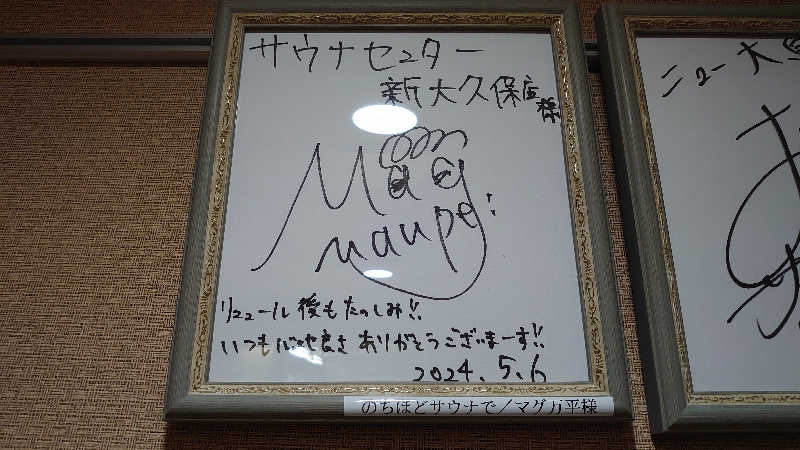 サウナセンター
新大久保店様
Mag
manpei!
リニューアル後もたのしみ!!
いつも居心地良さありがとうございまーす!!
2024.5.6
のちほどサウナで/マグ万平様
ニュー大